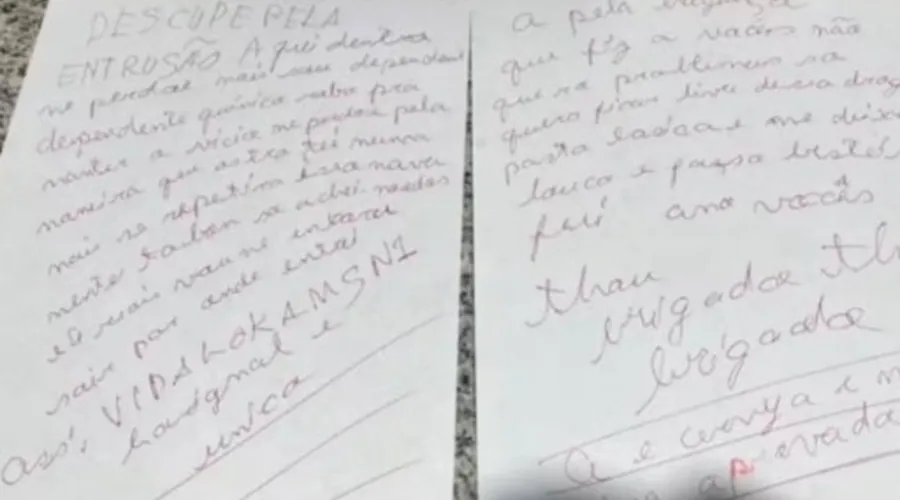 DESCUPE PELA
ENTRUSÃO A qui dentro
me perdoe mais sou dependent
dependente quimico robo pra
manter o vicio me perdoe pela
maneira que astra tei nunca
mais se repetira essa nova
mente tanbon so achei moedas
e a mais vou me entora
sair por onde entrei
ass, VIDALOKAMSN1
horiginal e
unico
a pela
que fiz a vocês não
quero problemas so
quero ficar livre dessa drog
pasta basica e me deixa
louco e faço bestei
fui amo vocês
thau
brigadoe th
brigadoe
a e cerveja e m
aprovada